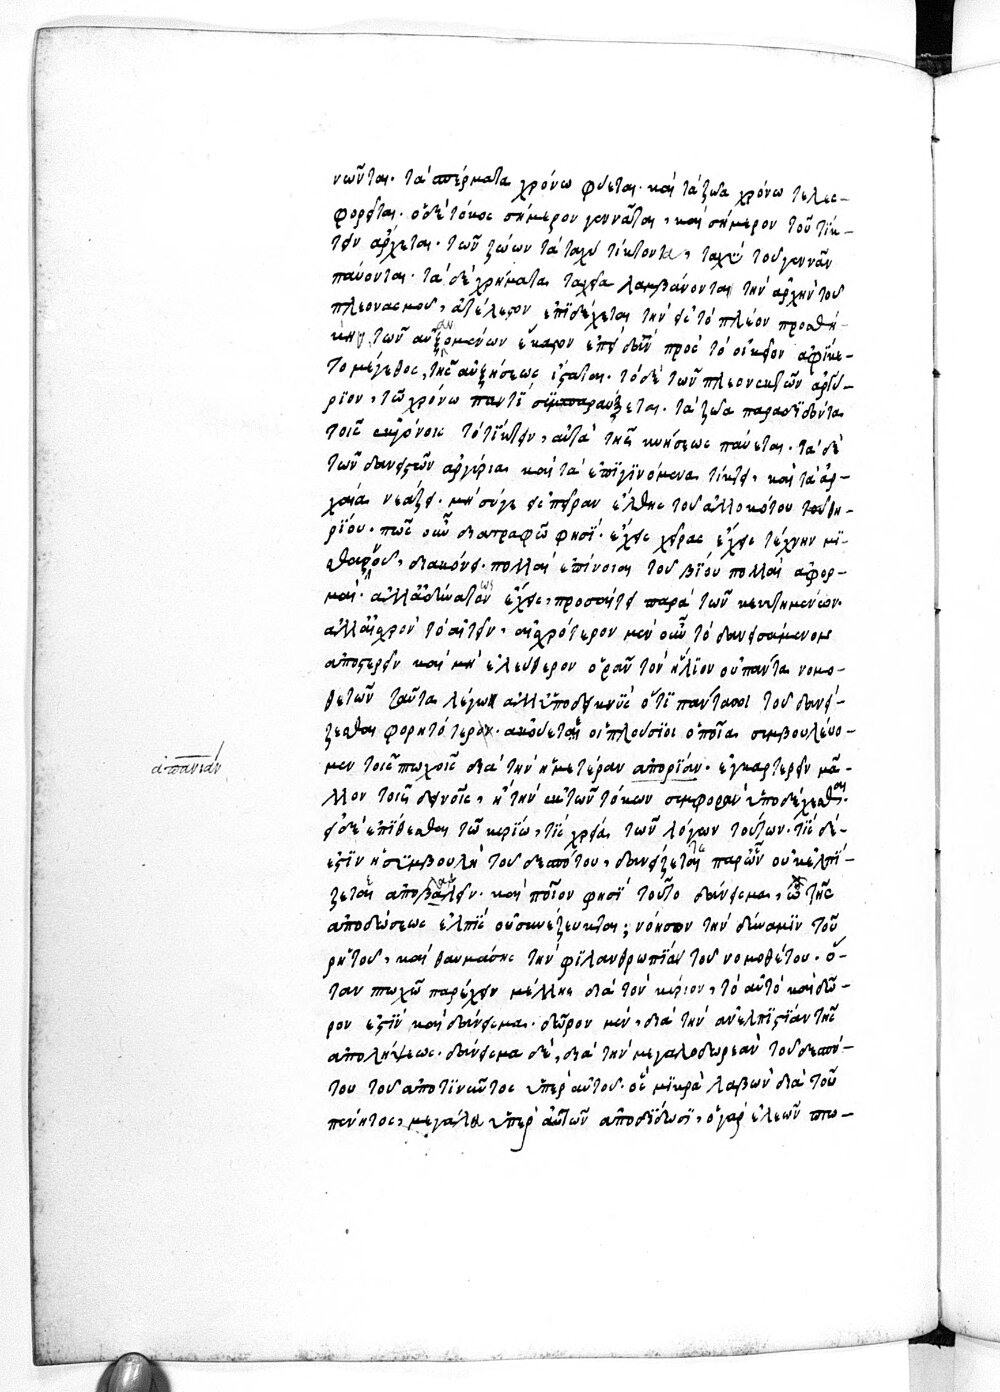 νῶνται· τὰ σπέρματα χρόνω φύεται· καὶ τὰ ζῶα χρόνω τελεσ-
φορεῖται· ὁ δὲ τόκος σήμερον γεννᾶται, καὶ σήμερον τοῦ τίκ-
τειν ἄρχεται· τῶν ζώων τὰ ταχὺ τίκτοντα, ταχὺ τοῦ γεννᾶν
παύονται· τὰ δὲ χρήματα ταχεῖα λαμβάνοντα τὴν ἀρχὴν τοῦ
πλεονασμοῦ, ἀτέλεστον ἐπιδέχεται τὴν εἰς τὸ πλέον προσθή-
κην, τῶν αὐξανομένων ἕκαστον ἐπειδὰν πρὸς τὸ οἰκεῖον ἀφίκη-
το μέγεθος, τῆς αὐξήσεως ἵσταται· τὸ δὲ τῶν πλεονεκτῶν ἀργύ-
ριον, τῶ χρόνω παντὶ συμπαραύξεται· τὰ ζῶα παραδιδόντα
τοῖς ἐκγόνοις τὸ τίκτειν, αὐτὰ τῆς κυήσεως παύεται· τὰ δὲ
τῶν δανειστῶν ἀργύρια καὶ τὰ ἐπιγινόμενα τίκτει, καὶ τὰ ἀρ-
χαῖα νεάζει· μὴ σύγε εἰς πεῖραν ἔλθης τοῦ ἀλλοκότου τούτου θη-
ρίου· πῶς οὖν διατραφῶ φησί· ἔχεις χεῖρας ἔχεις τέχνην μι-
σθαρνοῦ, διακόνει· πολλαὶ ἐπίνοιαι τοῦ βίου πολλαὶ ἀφορ-
μαί· ἀλλ' ἀδυνάτως ἔχεις, προσαίτει παρὰ τῶν κεκτημένων·
ἀλλ' αἰσχρὸν τὸ αἰτεῖν, αἰσχρότερον μὲν οὖν τὸ δανεισάμενον
ἀποστερεῖν καὶ μὴ ἐλεύθερον ὁρᾶν τὸν ἥλιον οὐ πάντα νομο-
θετῶν ταῦτα λέγω ἀλλ' ὑποδεικνὺς ὅτι πάντα σοι τοῦ δανεί-
ζεσθαι φορητότερον· ἀκούεται οἱ πλούσιοι ὁποῖα συμβουλεύο-
μεν τοῖς πτωχοῖς διὰ τὴν ἡμετέραν ἀπορίαν· ἐγκαρτερεῖν μᾶ-
ἀπανίαν
λλον τοῖς δεινοῖς, ἢ τὴν ἐκ τῶν τόκων συμφορὰν ὑποδέχεσθαι·
εἰ δὲ ἐπίθεσθαι τῶ κυρίω, τίς χρεία τῶν λόγων τούτων· τίς δέ-
ἐστιν ἡ συμβουλὴ τοῦ δεσπότου, δανείζεται παρ' ὧν οὐκ ἐλπί-
ζεται ἀπολαβεῖν· καὶ ποῖον φησὶ τοῦτο δάνεισμα, ὧ τῆς
ἀποδώσεως ἐλπὶς οὐ συνέζευκται; νόησον τὴν δύναμιν τοῦ
ρητοῦ, καὶ θαυμάσης τὴν φιλανθρωπίαν τοῦ νομοθέτου· ὅ-
ταν πτωχῶ παρέχειν μέλλης διὰ τὸν κύριον, τὸ αὐτὸ καὶ δῶ-
ρον ἐστὶν καὶ δάνεισμα· δῶρον μὲν, διὰ τὴν ἀνελπιστίαν τῆς
ἀπολήψεως· δάνεισμα δὲ, διὰ τὴν μεγαλοδωρεὰν τοῦ δεσπό-
του τοῦ ἀποτιννῶντος ὑπὲρ αὐτοῦ· ὃς μικρὰ λαβὼν διὰ τοῦ
πένητος, μεγάλα ὑπὲρ αὐτῶν ἀποδίδωσι, ὁ γὰρ ἐλεῶν πτω-